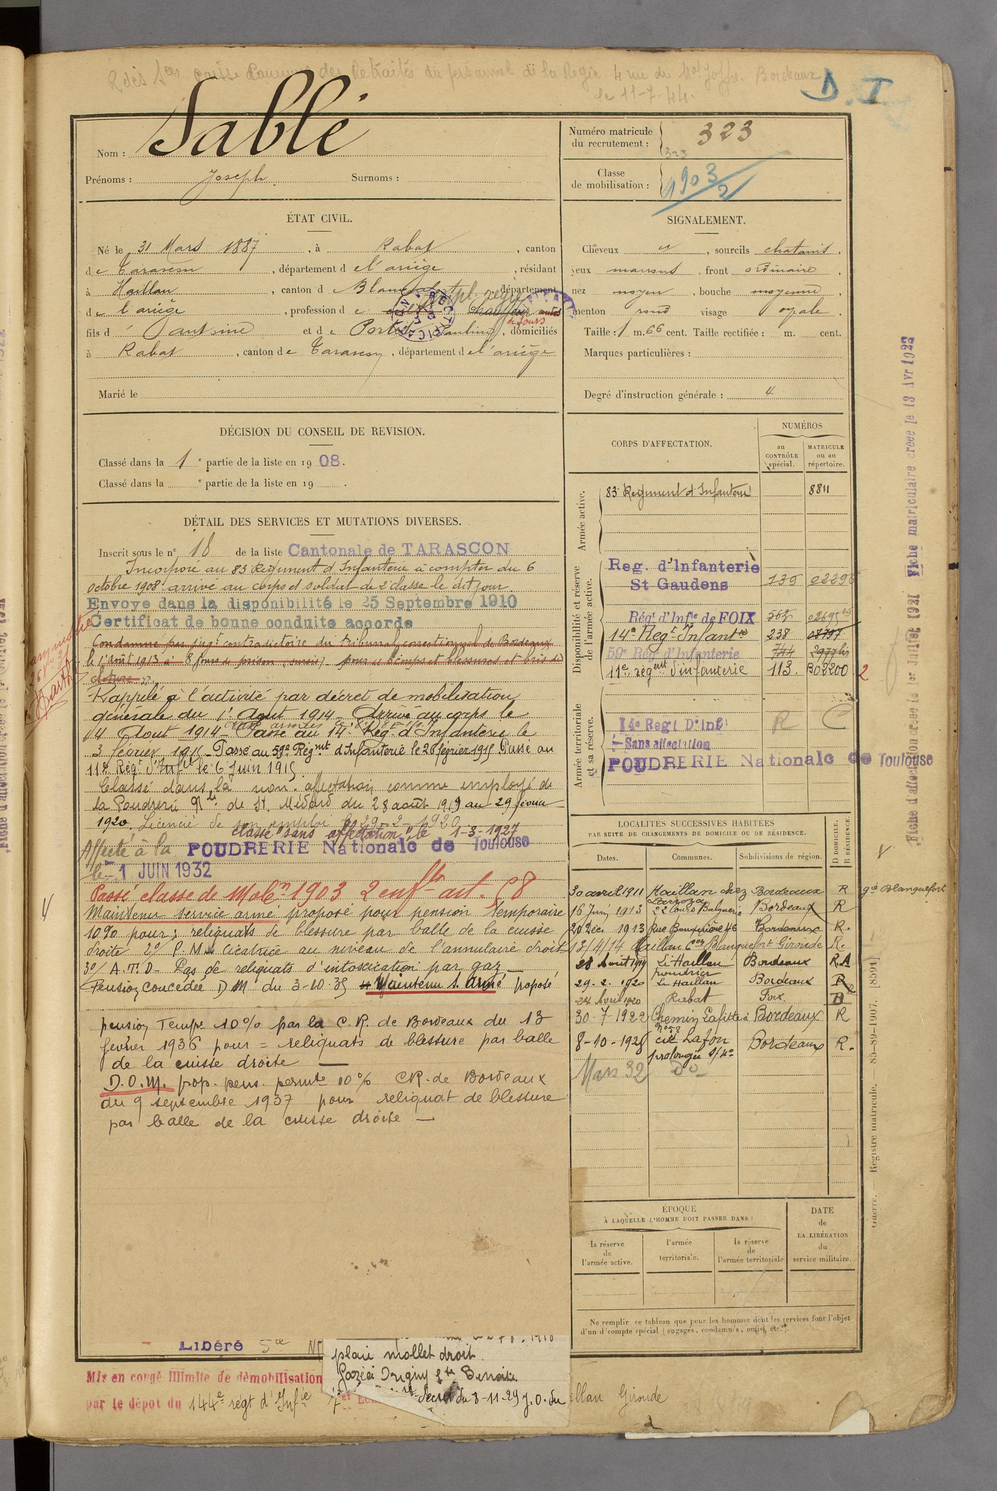 4 rue du Mal Joffre. Bordeaux
le 11-7-44.
D. I
Nom : Sablé
Prénoms : Joseph Surnoms :
Numéro matricule du recrutement : 323
Classe de mobilisation : 1903/2
ÉTAT CIVIL.
Né le 31 Mars 1887, à Rabat, canton
de Tarascon, département de l'ariège, résidant
à Haillan, canton de Blanquefort, département
de l'ariège, profession de Chauffeur
fils d'Antoine et de Portes Pauline, domiciliés
à Rabat, canton de Tarascon, département de l'ariège
Marié le
SIGNALEMENT.
Cheveux et, sourcils chatains,
yeux marrons front ordinaire,
nez moyen, bouche moyenne,
menton rond visage ovale.
Taille : 1 m. 66 cent. Taille rectifiée : m. cent.
Marques particulières :
Degré d'instruction générale : 4
DÉCISION DU CONSEIL DE REVISION.
Classé dans la 1e partie de la liste en 1908.
Classé dans la e partie de la liste en 19
DÉTAIL DES SERVICES ET MUTATIONS DIVERSES.
Inscrit sous le n° 18 de la liste Cantonale de TARASCON
Incorporé au 83 Régiment d'Infanterie à compter du 6
octobre 1908 arrivé au corps et soldat de 2 classe le dit jour
Envoyé dans la disponibilité le 25 Septembre 1910
Certificat de bonne conduite accordé
Condamné par jugt contradictoire du Tribunal correctionnel de Bordeaux
le 1 Août 1913 à 8 jours de prison (sursis) pour coups et blessures et bris de
cloture
Rappelé à l'activité par décret de mobilisation
générale du 1er Août 1914. Arrivé au corps le
4 Août 1914. Passé au 14e Rég. d'Infanterie le
3 février 1915. Passé au 59e Régmt d'Infanterie le 26 février 1915 Passé au
11e Régt d'Infie le 6 Juin 1915
Classé dans la non. affectation comme employé de
la Poudrerie Nle de St. Médard du 28 août 1919 au 29 février
1920. Licencié de son emploi le 29-2-1920
Classé "sans affectation" le 1-3-1927
Affecté à la POUDRERIE Nationale de Toulouse
le 1 JUIN 1932
Passé classe de Mobon 1903 2 enfts art. 58
Maintenu service armé proposé pour pension temporaire
10% pour : reliquats de blessure par balle de la cuisse
droite 2° P.M. cicatrice au niveau de l'annulaire droit
3°/ A.T.D. Pas de reliquats d'intoxication par gaz
Pension concédée D.M. du 3-10-35 Maintenu s. armé proposé
pension Temp. 10% par la C.R. de Bordeaux du 13
février 1936 pour = reliquats de blessure par balle
de la cuisse droite
D.O.M. prop. pens. permte 10% CR. de Bordeaux
du 9 septembre 1937 pour reliquat de blessure
par balle de la cuisse droite
CORPS D'AFFECTATION.
NUMÉROS
au CONTRÔLE spécial.
MATRICULE ou au répertoire.
Armée active.
83 Régiment d'Infanterie 8811
Disponibilité et réserve de l'armée active.
Reg. d'Infanterie
St Gaudens 135
Régt d'Infie de FOIX
14e Régt Infantie 238 08797
59e Régt d'Infanterie
11e régmt d'infanterie 113
Armée territoriale et sa réserve.
14e Regt D'Infie R C
Sans affectation
POUDRERIE Nationale de Toulouse
LOCALITÉS SUCCESSIVES HABITÉES
PAR SUITE DE CHANGEMENTS DE DOMICILE OU DE RÉSIDENCE.
Dates. Communes. Subdivisions de région. D. DOMICILE. R. RÉSIDENCE.
30 avril 1911 Haillan chez Bordeaux R Blanquefort
16 Juin 1913 Bordeaux R
20 Déc. 1913 46 Bordeaux R.
13/4/14 Haillan Con Blanquefort Gironde R.
28 Août 1919 Le Haillan poudrier Bordeaux R.A
29.2.1920 Le Haillan Bordeaux R
24 Août 1920 Rabat Foix D
30-7-1922 Bordeaux R
8-10-1926 cité Lafon prolongée Bordeaux R.
Mars 32 do
ÉPOQUE
À LAQUELLE L'HOMME DOIT PASSER DANS :
la réserve de l'armée active.
l'armée territoriale.
la réserve de l'armée territoriale
DATE de LA LIBÉRATION du service militaire.
Ne remplir ce tableau que pour les hommes dont les services font l'objet
d'un décompte spécial (engagés, condamnés, omis, etc.)
Libéré
plaie mollet droit.
Gazé à Origny Ste Benoite
décret du 8-11-29 J.O. du
Mis en congé illimité de démobilisation
par le dépôt du 144e régt d'Infie
Haillan Gironde
Fiche matriculaire créée le 13 Avr 1927
Guerre. — Registre matricule. 85-89-1907. [8391]